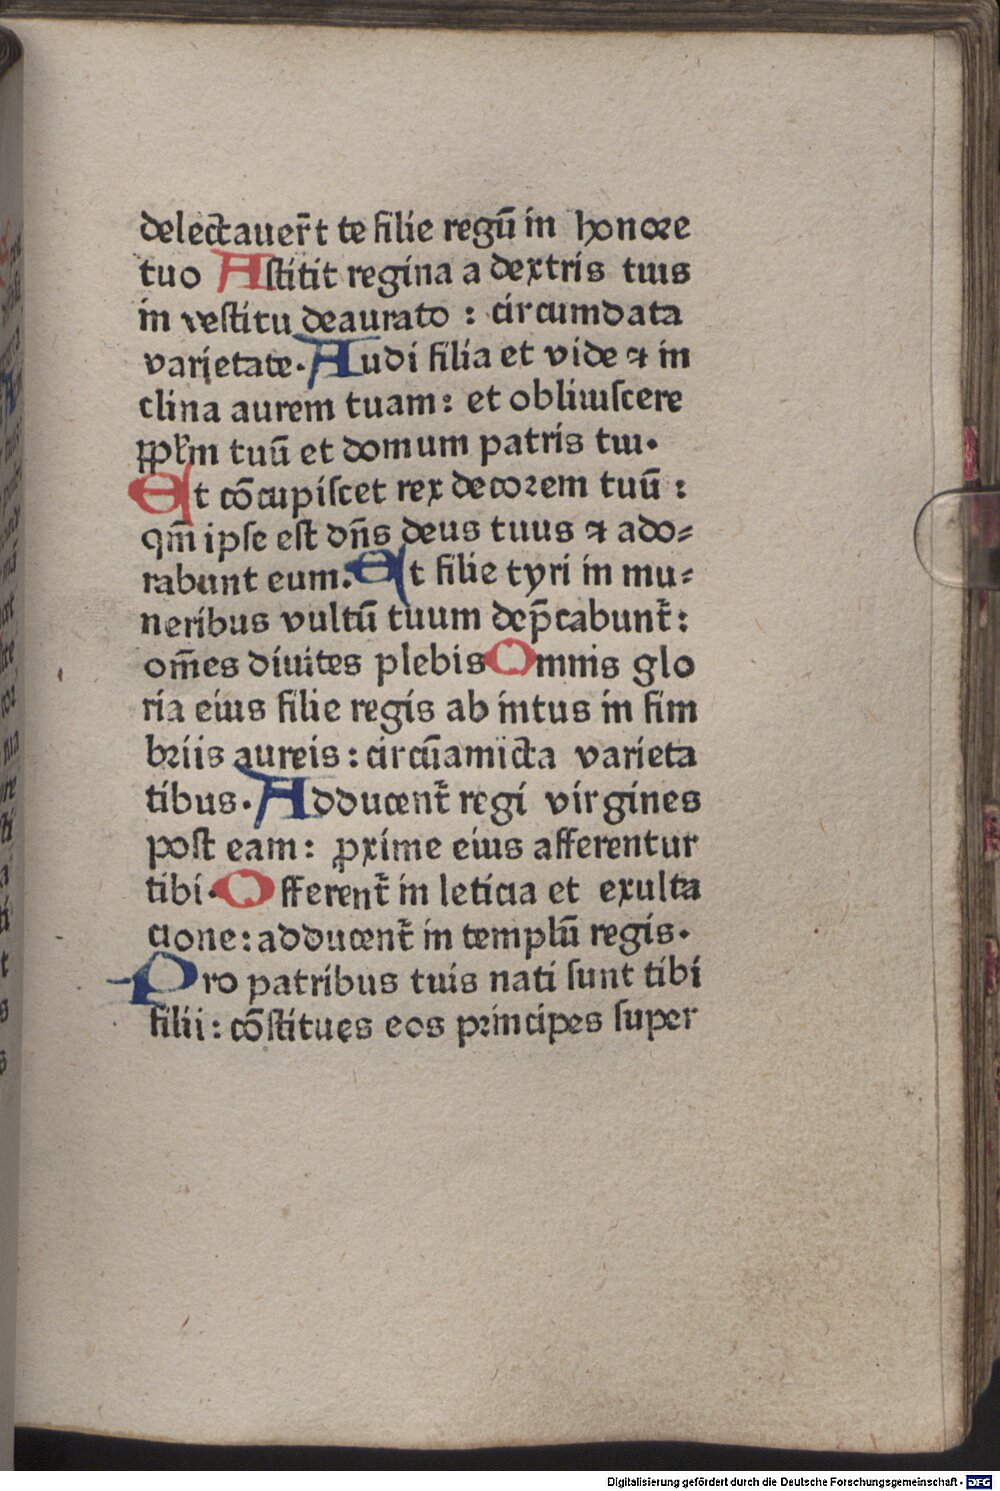 delectauer̄t te filie regū in honore
tuo Astitit regina a dextris tuis
in vestitu deaurato : circumdata
varietate. Audi filia et vide ⁊ in
clina aurem tuam : et obliuiscere
pplm̄ tuū et domum patris tui.
Et cōcupiscet rex decorem tuū :
qm̄ ipse est dn̄s deus tuus ⁊ ado=
rabunt eum. Et filie tyri in mu=
neribus vultū tuum dep̄cabunt̄ :
om̄es diuites plebis Omnis glo
ria eius filie regis ab intus in fim
briis aureis : circūamicta varieta
tibus. Adducent̄ regi virgines
post eam : ꝓxime eius afferentur
tibi. Offerent̄ in leticia et exulta
cione : adducent̄ in templū regis.
Pro patribus tuis nati sunt tibi
filii : cōstitues eos principes super
Digitalisierung gefördert durch die Deutsche Forschungsgemeinschaft - DFG